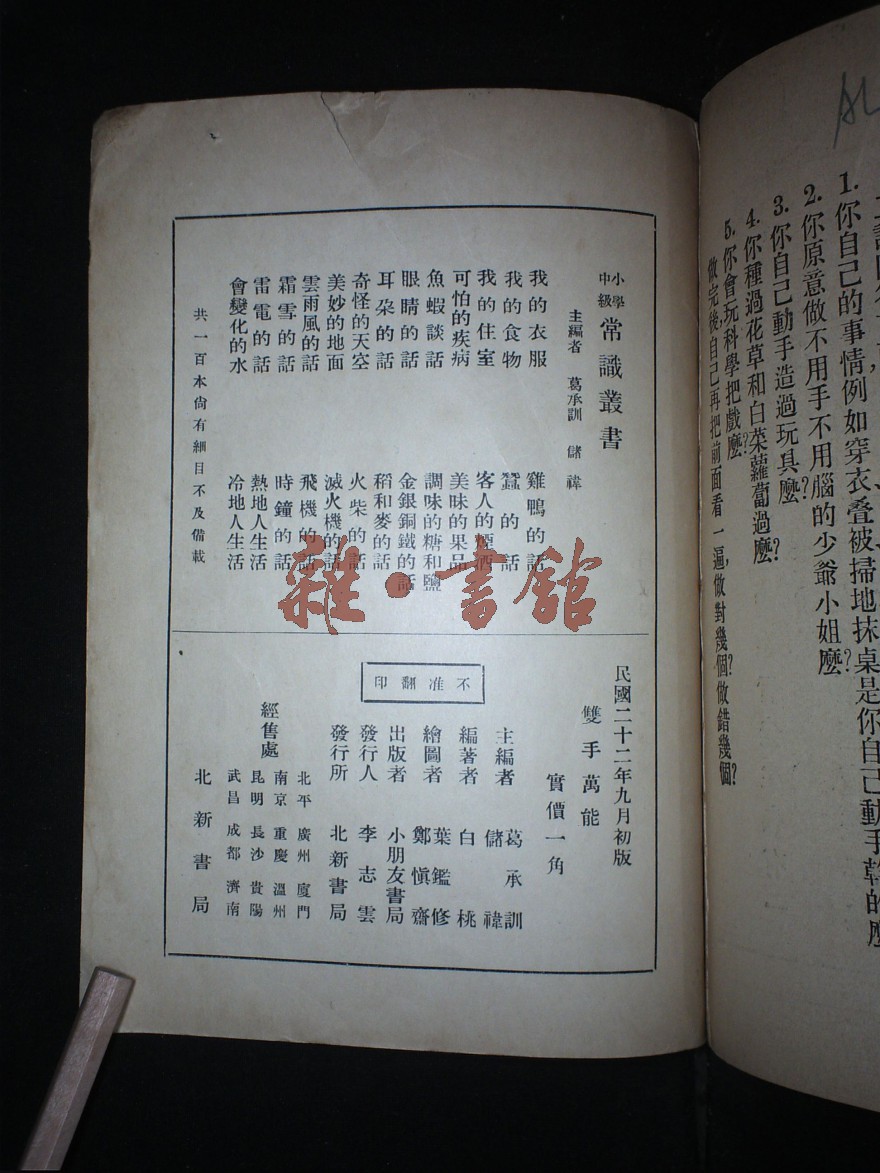 AL
1. 你自己的事情例如穿衣叠被掃地抹桌是你自己動手幹的麼?
2. 你原意做不用手不用腦的少爺小姐麼?
3. 你自己動手造過玩具麼?
4. 你種過花草和白菜蘿蔔過麼?
5. 你會玩科學把戲麼?
做完後,自己再把前面看一遍,做對幾個?做錯幾個?
小學中級 常識叢書
主編者 葛承訓 儲禕
我的衣服
我的食物
我的住室
可怕的疾病
魚蝦談話
眼睛的話
耳朶的話
奇怪的天空
美妙的地面
雲雨風的話
霜雪的話
雷電的話
會變化的水
雞鴨的話
蠶的話
客人的煙酒
美味的果品
調味的糖和鹽
金銀銅鐵的話
稻和麥的話
火柴的話
滅火機的話
飛機的話
時鐘的話
熱地人生活
冷地人生活
共一百本尙有細目不及備載
雜·書館
民國二十二年九月初版
雙手萬能
實價一角
不准翻印
主編者 葛承訓 儲禕
編著者 白桃
繪圖者 葉鑑修 鄭愼齋
出版者 小朋友書局
發行人 李志雲
發行所 北新書局
經售處
北平 廣州 廈門
南京 重慶 溫州
昆明 長沙 貴陽
武昌 成都 濟南
北新書局